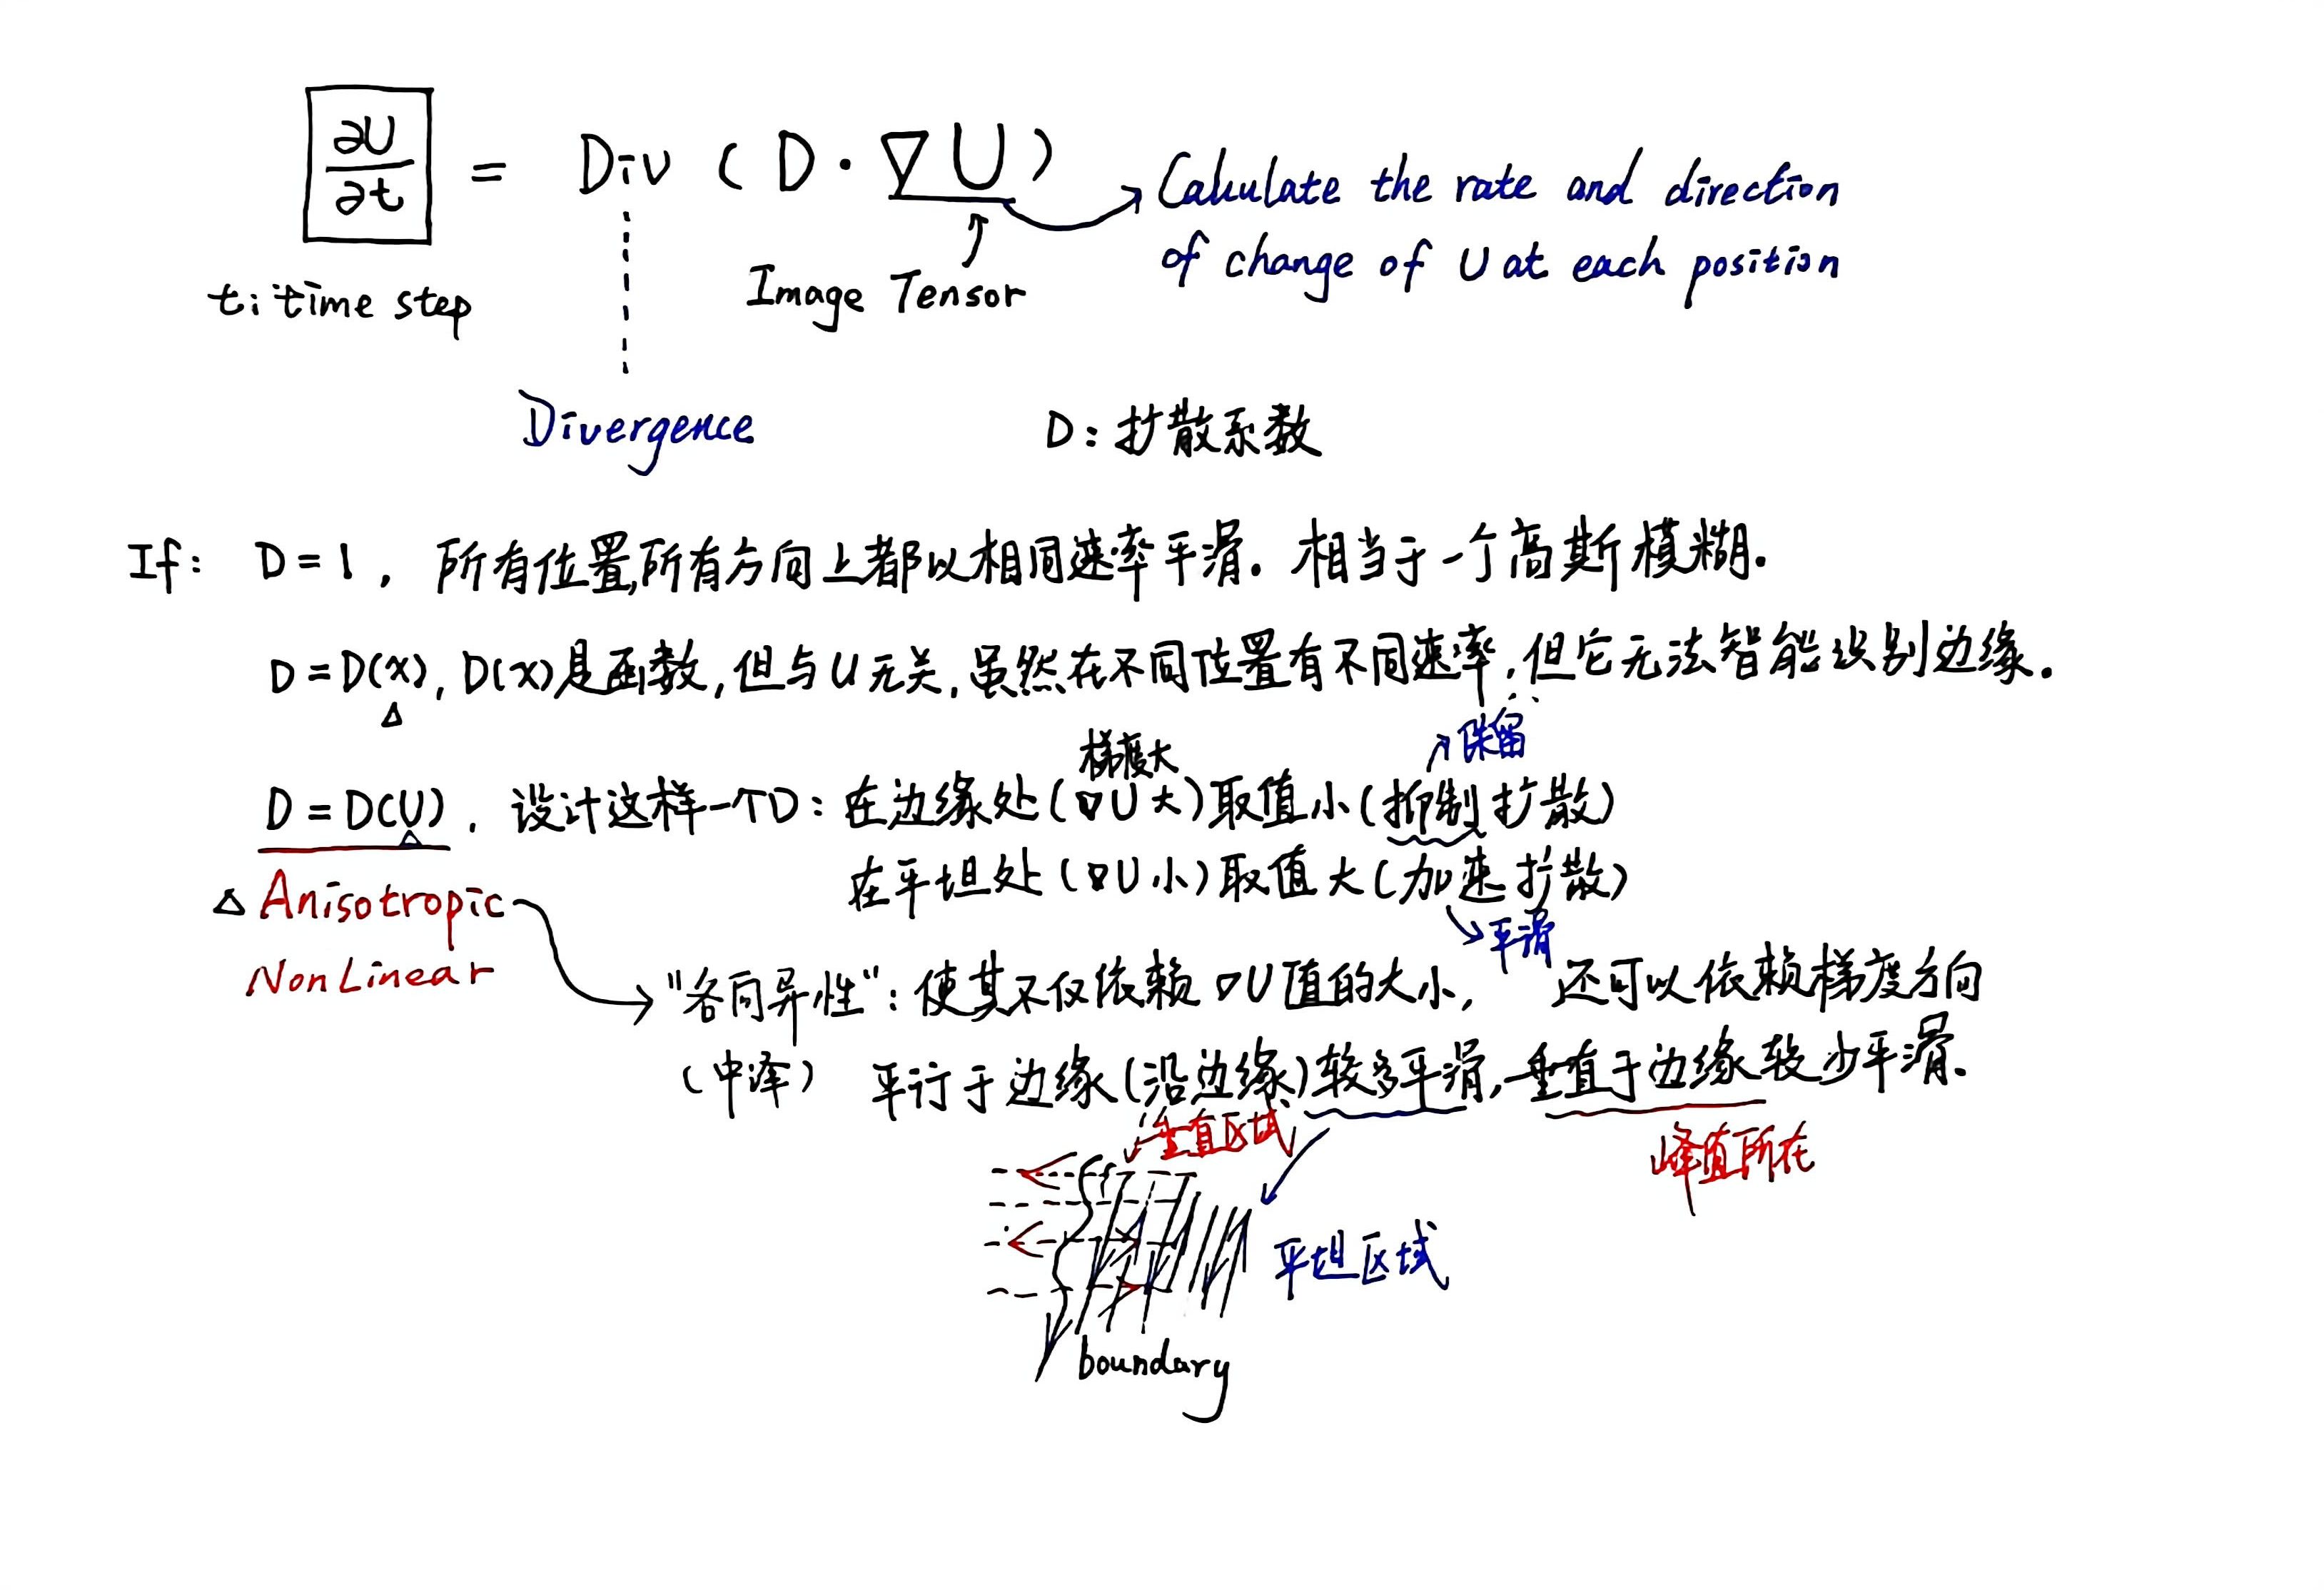 ∂U/∂t = Div ( D · ∇U )
Calculate the rate and direction
of change of U at each position
t: time step
Image Tensor
Divergence
D: 扩散系数
If: D = 1, 所有位置,所有方向上都以相同速率平滑. 相当于一个高斯模糊.
D = D(x), D(x)是函数, 但与U无关, 虽然在不同位置有不同速率, 但它无法智能识别边缘.
△
梯度大
保留
D = D(U), 设计这样一个D: 在边缘处(∇U大)取值小(抑制扩散)
△
在平坦处(∇U小)取值大(加速扩散)
平滑
△ Anisotropic
NonLinear
"各向异性": 使其不仅依赖∇U值的大小, 还可以依赖梯度方向
(中译) 平行于边缘(沿边缘)较多平滑, 垂直于边缘较少平滑.
垂直区域
峰值所在
平坦区域
boundary